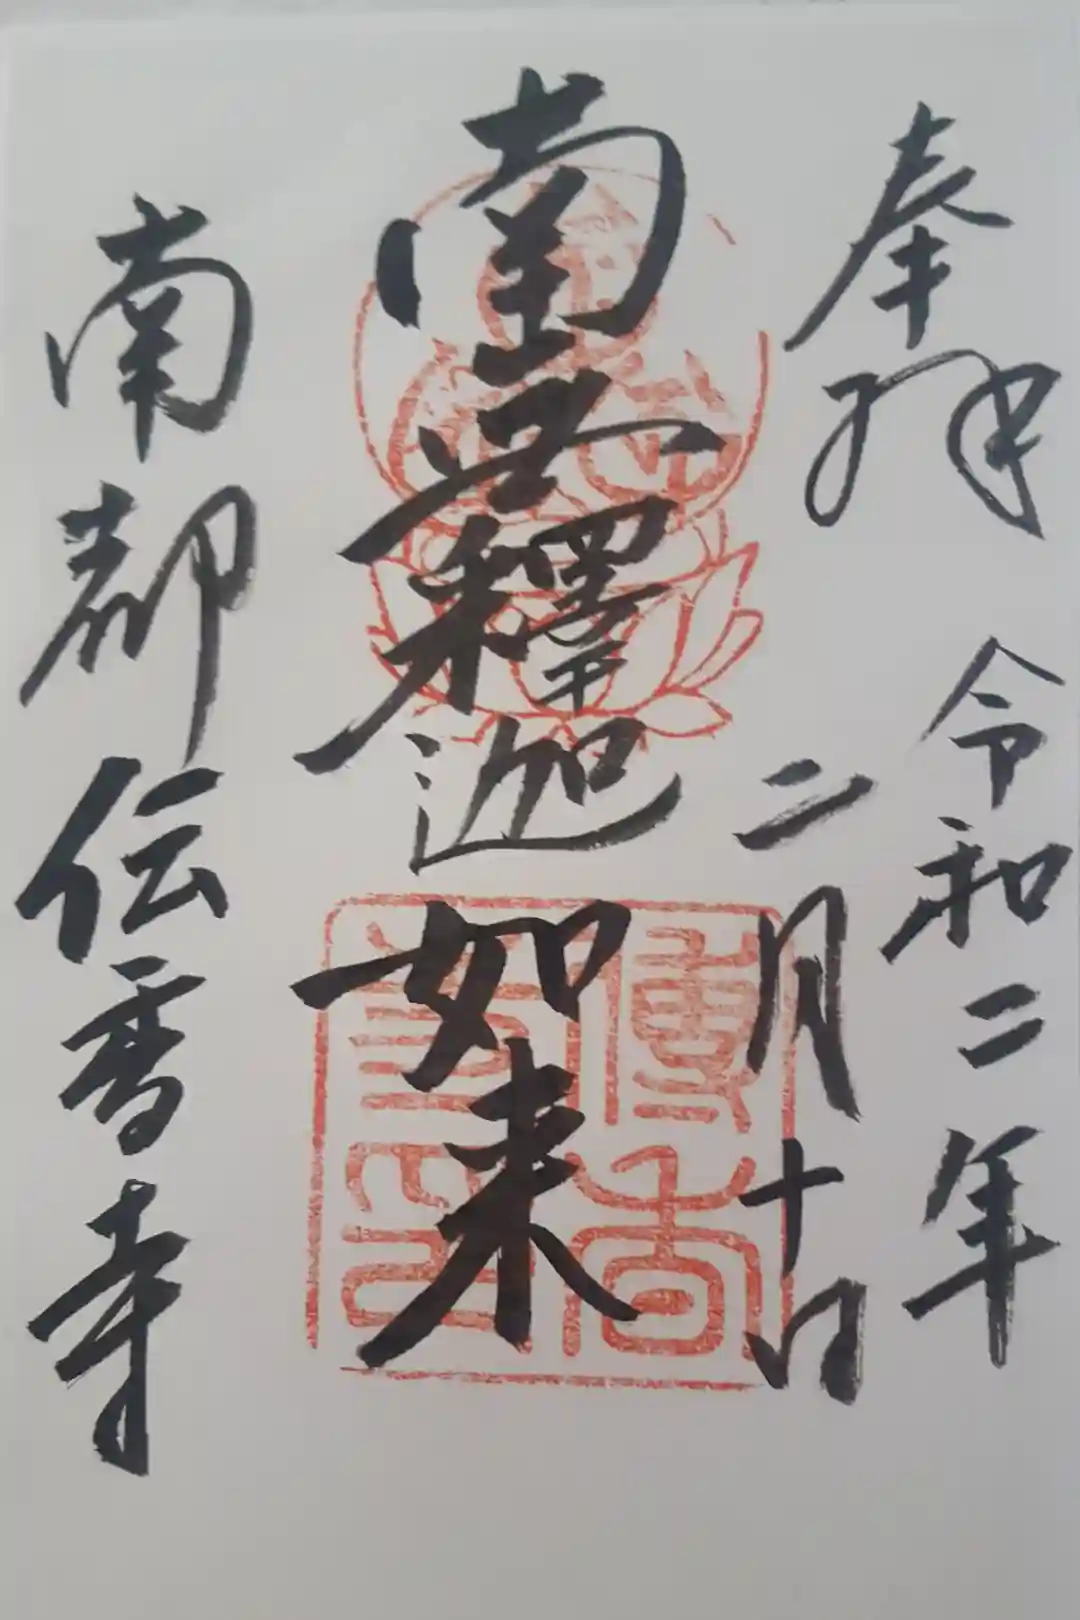 奉拝
令和二年
二月十日
南無釋迦如来
傳香
寺印
南都伝香寺